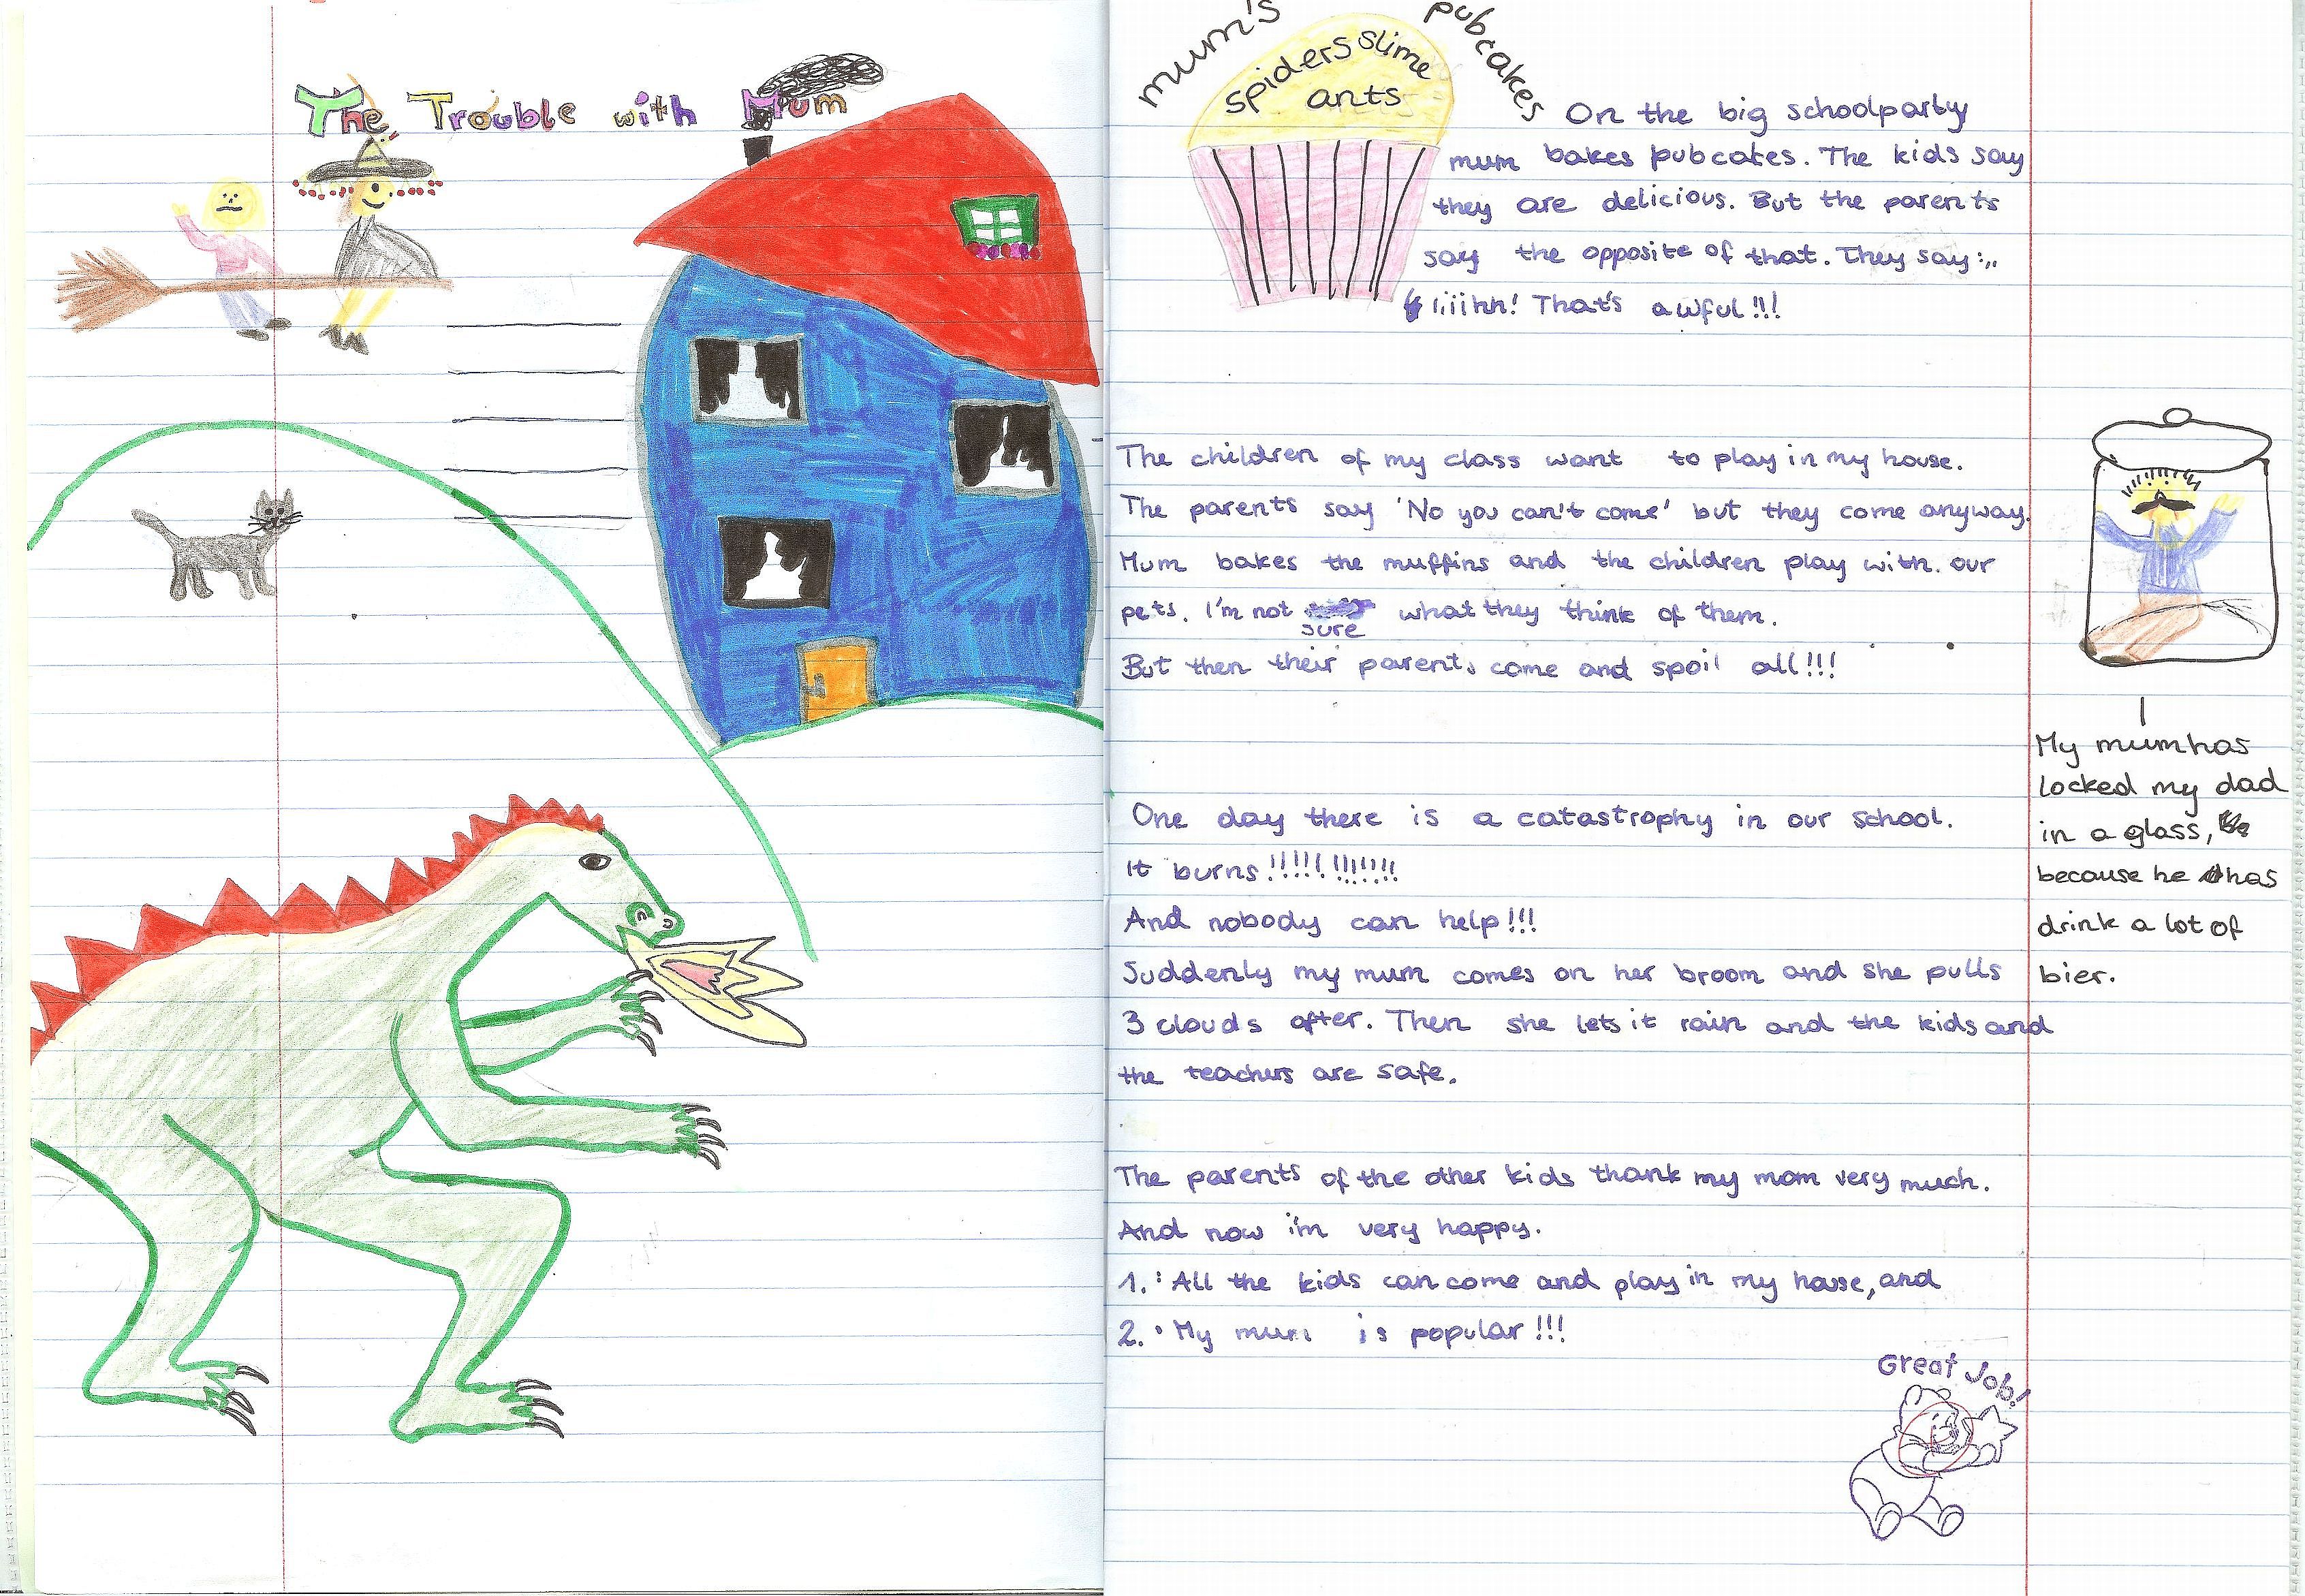 The Trouble with Mum
mum's pubcakes
spiders slime
ants
On the big schoolparty
mum bakes pubcakes. The kids say
they are delicious. But the parents
say the opposite of that. They say:,,
iiiihh! That's awful!!!
The children of my class want to play in my house.
The parents say 'No you can't come' but they come anyway.
Mum bakes the muffins and the children play with. our
pets. I'm not sure what they think of them.
But then their parents come and spoil all!!!
My mum has
locked my dad
in a glass,
because he has
drink a lot of
bier.
One day there is a catastrophy in our school.
It burns!!!!!!!!!!!!!
And nobody can help!!!
Suddenly my mum comes on her broom and she pulls
3 clouds after. Then she lets it rain and the kids and
the teachers are safe.
The parents of the other kids thank my mom very much.
And now i'm very happy.
1.: All the kids can come and play in my house, and
2.: My mum is popular!!!
Great Job!